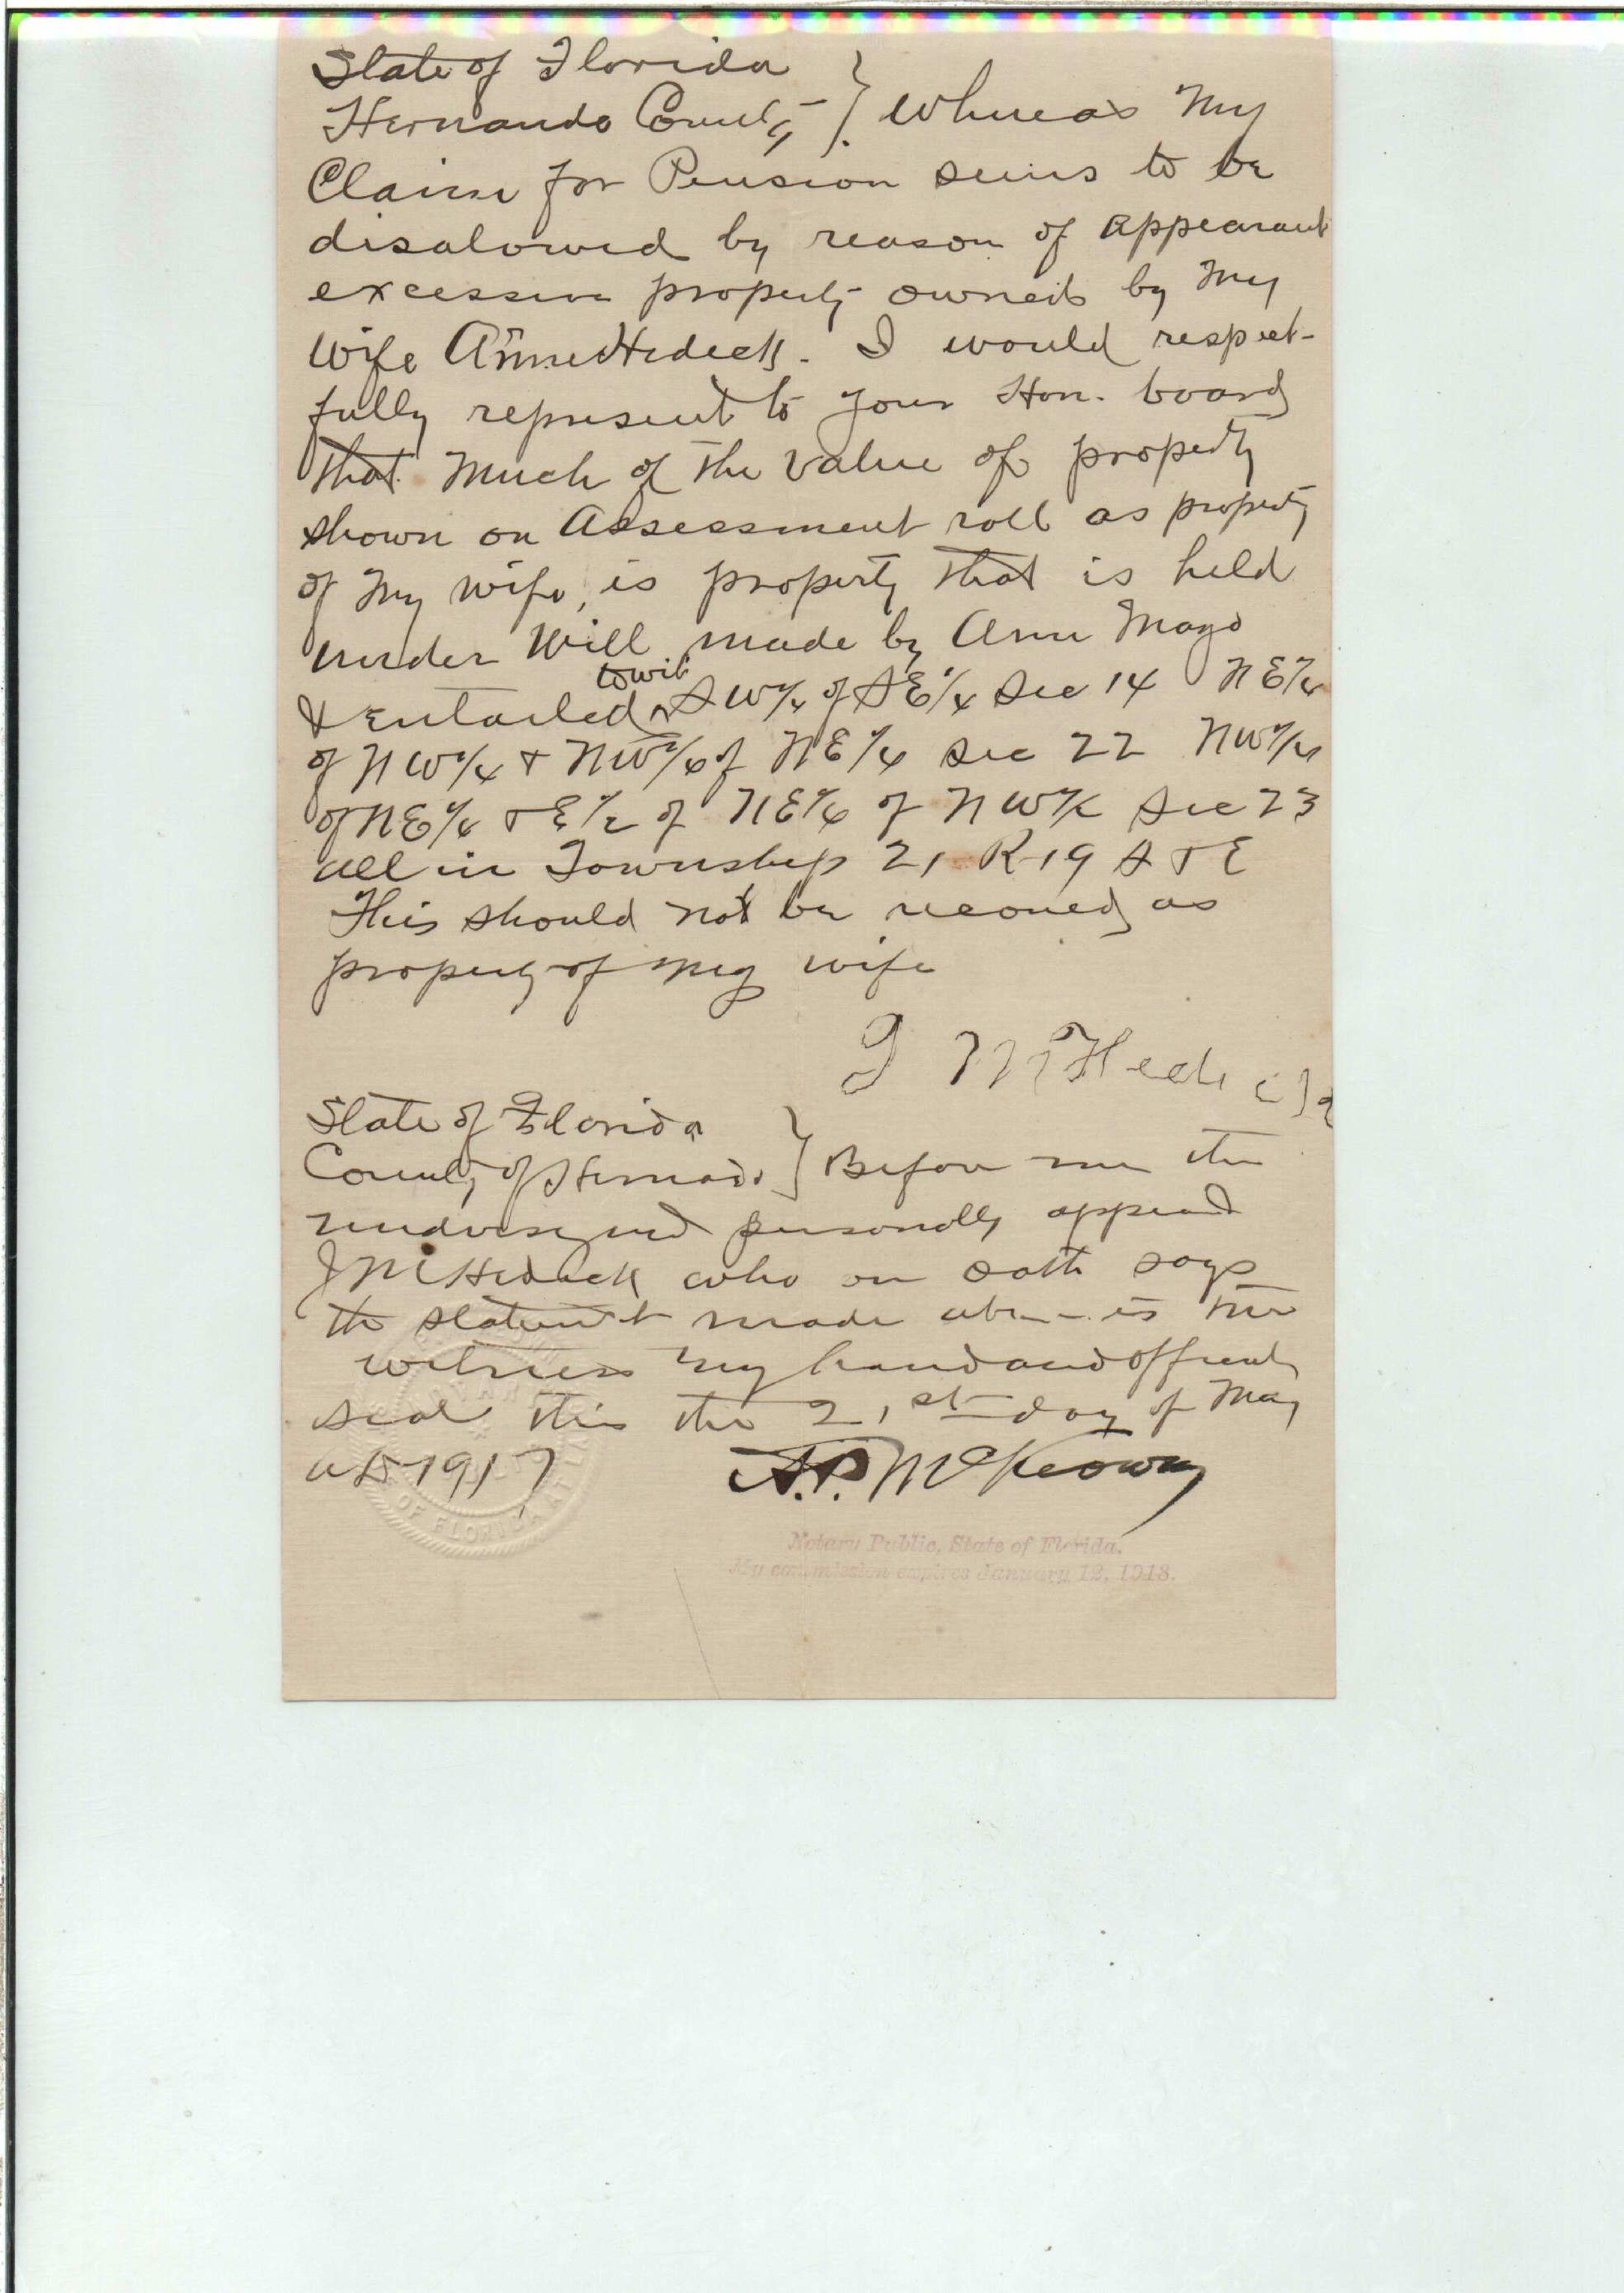 State of Florida
Hernando County } Whereas My
Claim for Pension seems to be
disalowed by reason of appearant
excessive property owned by My
Wife Annie Hedick. I would respect-
fully represent to your Hon. board
that Much of the value of property
shown on Assessment roll as property
of My wife, is property that is held
under Will made by Ann Mayo
& entailed towit SW1/4 of SE1/4 Sec 14 NE1/4
of NW1/4 & NW1/4 of NE1/4 Sec 22 NW1/4
of NE1/4 & E1/2 of NE1/4 of NW1/4 Sec 23
all in Township 21 R-19 S & E
This should not be reconed as
property of my wife
J M Hedick
State of Florida
County of Hernando } Before me the
undersigned personally appeared
J M Hedick who on oath says
the statement made above is true
witness my hand and official
seal this the 21st day of May
AD 1917 A.P. McKeown
Notary Public, State of Florida.
My commission expires January 12, 1918.
OF FLORIDA